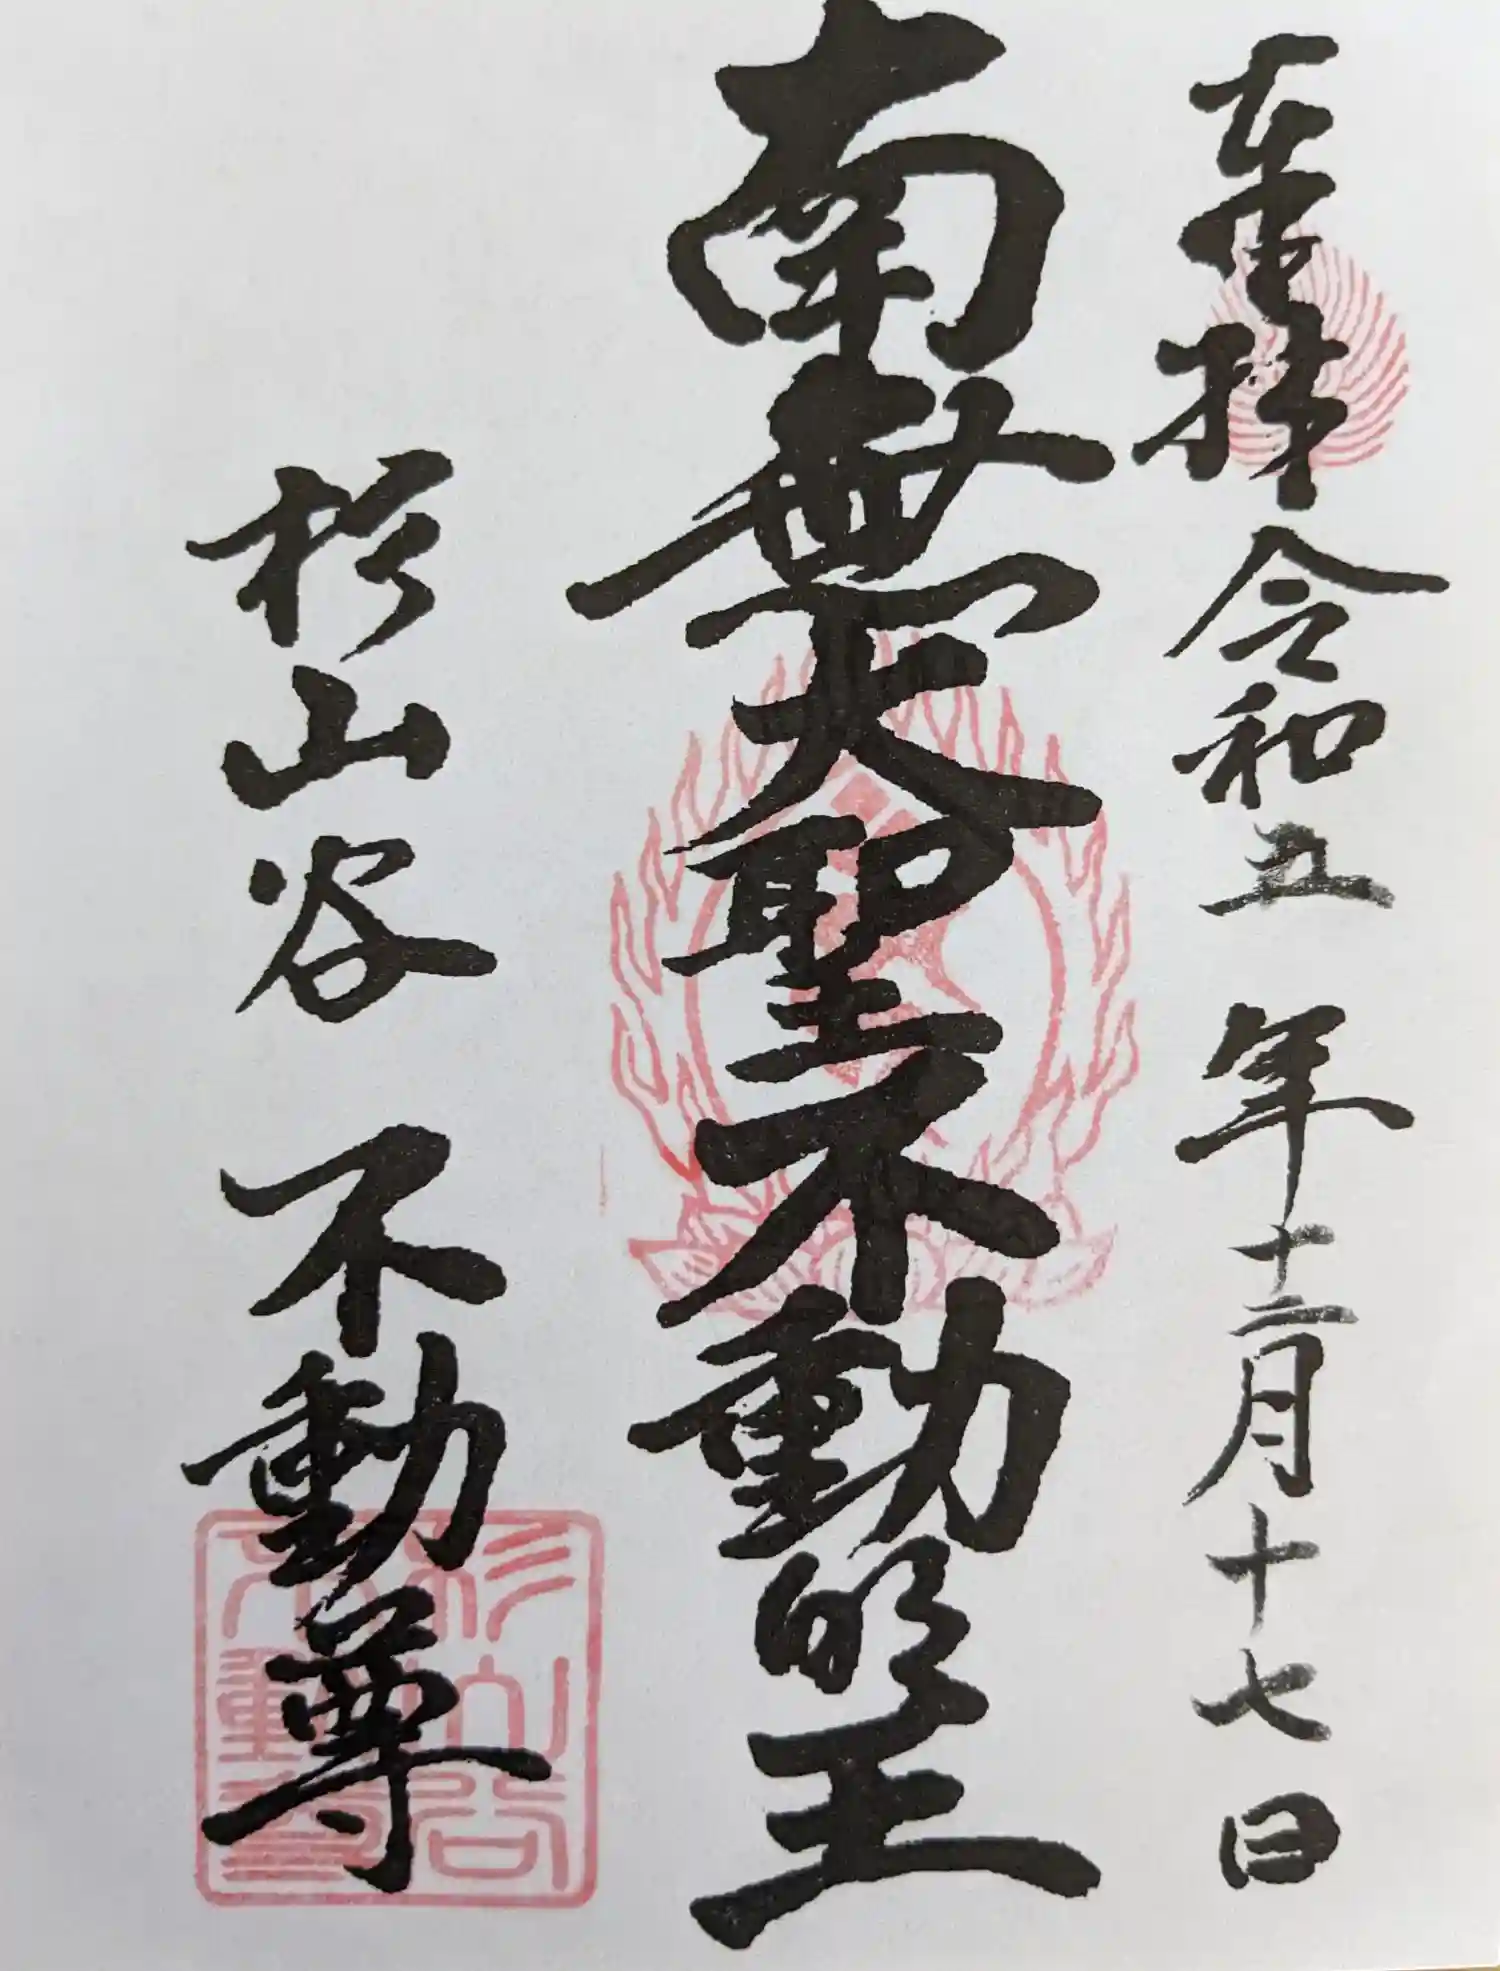 奉拝 令和五年十二月十七日
南無大聖不動明王
杉山谷 不動尊
杉山谷
不動尊